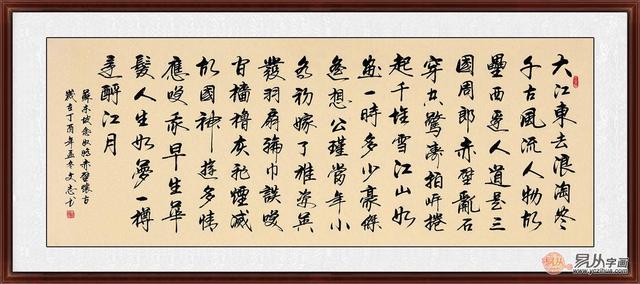 大江東去浪淘盡
千古風流人物故
壘西邊人道是三
國周郎赤壁亂石
穿空驚濤拍岸捲
起千堆雪江山如
畫一時多少豪傑
遙想公瑾當年小
喬初嫁了雄姿英
發羽扇綸巾談笑
間檣櫓灰飛煙滅
故國神遊多情
應笑我早生華
髮人生如夢一樽
還酹江月
蘇東坡念奴嬌赤壁懷古
歲在丁酉年孟冬文志書
易从字画
www.yczihua.com